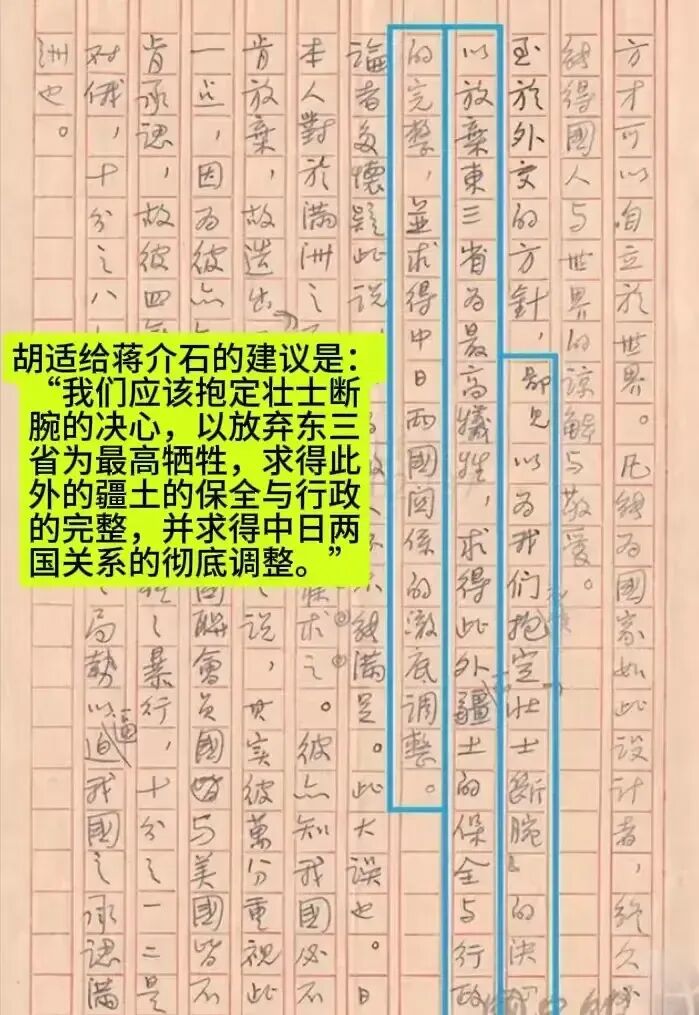 方才可以自立於世界。凡能為國家如此設計者，終久必
能得國人与世界的諒解与敬愛。
至於外交的方針，鄙見以為我们抱定「壯士断腕」的決心，
以放棄東三省為最高犧牲，求得此外疆土的保全与行政
的完整，並求得中日两國関係的澈底調整。
論者多懷疑此說，能滿足。此大误也。日
本人對於滿洲之求之。彼亦知我國必不
肯放棄，故造出說，其实彼萬分重視此
一点，因為彼亦國聯會员國皆与美國皆不
肯承認，故彼四之暴行，十分之一二是
对俄，十分之八局勢以逼迫我國之承認滿
洲也。
胡适给蒋介石的建议是：
“我们应该抱定壮士断
腕的决心，以放弃东三
省为最高牺牲，求得此
外的疆土的保全与行政
的完整，并求得中日两
国关系的彻底调整。”